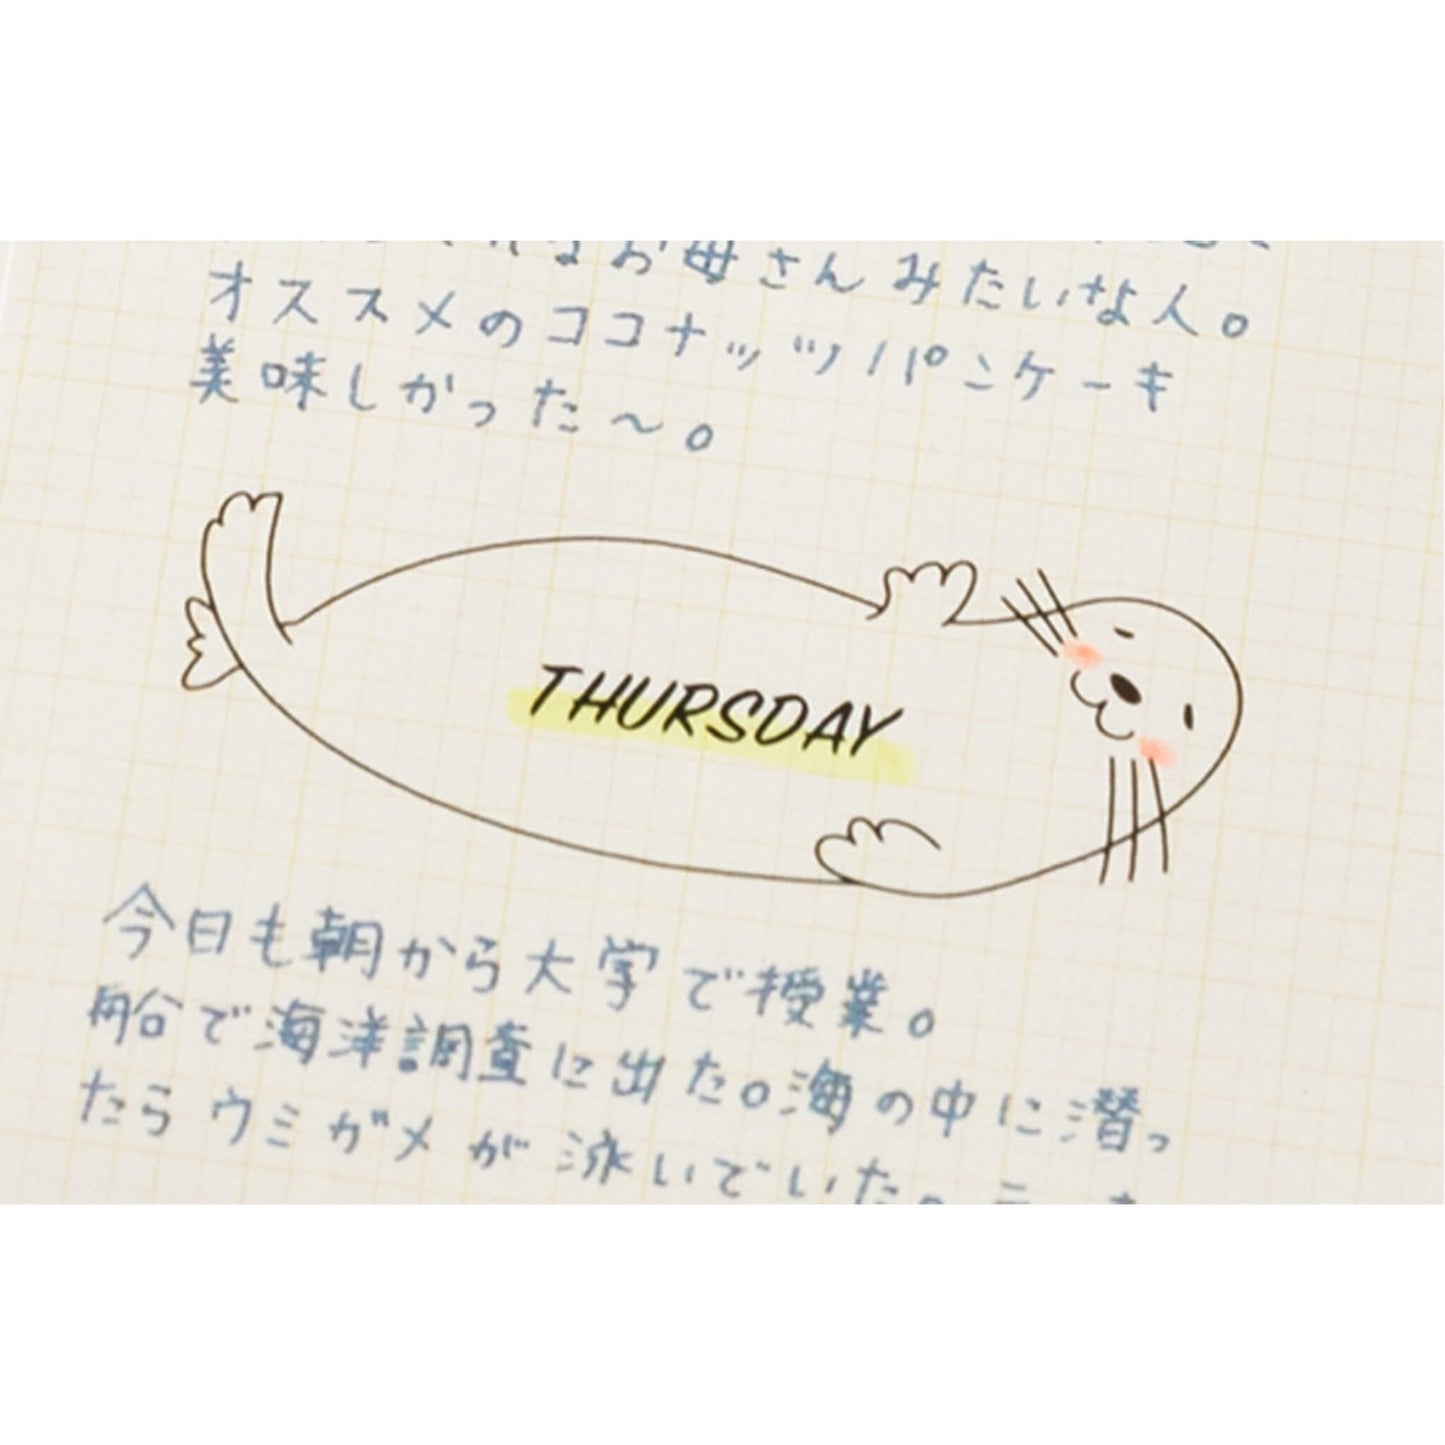 お母さんみたいな人。
オススメのココナッツパンケーキ
美味しかった〜。
THURSDAY
今日も朝から大学で授業。
船で海洋調査に出た。海の中に潜っ
たらウミガメが泳いでいた。